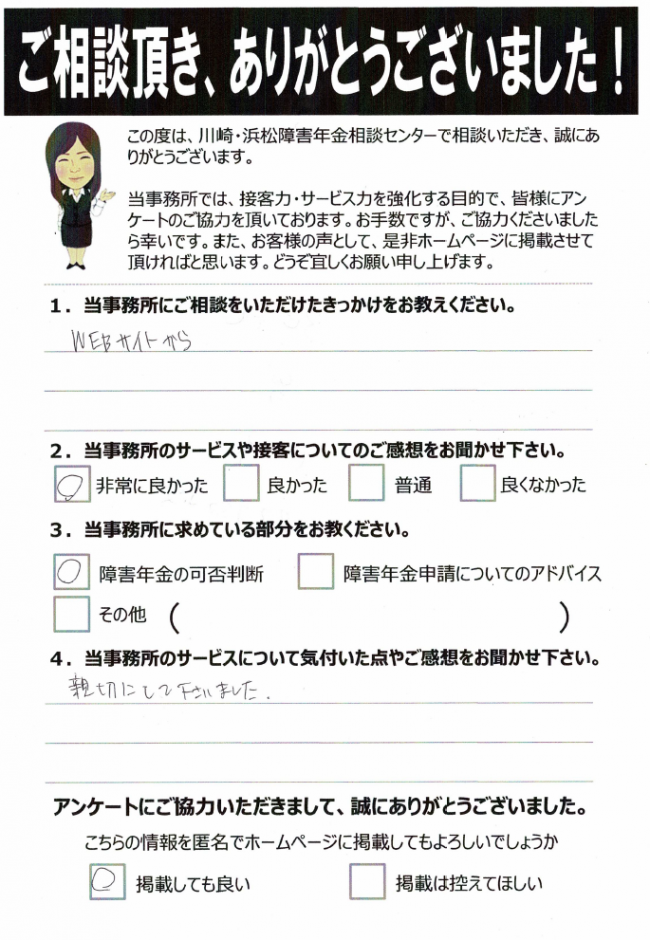 ご相談頂き、ありがとうございました！
この度は、川崎・浜松障害年金相談センターで相談いただき、誠にあ
りがとうございます。
当事務所では、接客力・サービス力を強化する目的で、皆様にアン
ケートのご協力を頂いております。お手数ですが、ご協力くださいました
ら幸いです。また、お客様の声として、是非ホームページに掲載させて
頂ければと思います。どうぞ宜しくお願い申し上げます。
１．当事務所にご相談をいただけたきっかけをお教えください。
WEBサイトから
２．当事務所のサービスや接客についてのご感想をお聞かせ下さい。
非常に良かった 良かった 普通 良くなかった
３．当事務所に求めている部分をお教ください。
障害年金の可否判断 障害年金申請についてのアドバイス
その他 (　　　)
４．当事務所のサービスについて気付いた点やご感想をお聞かせ下さい。
親切にして下さいました.
アンケートにご協力いただきまして、誠にありがとうございました。
こちらの情報を匿名でホームページに掲載してもよろしいでしょうか
掲載しても良い 掲載は控えてほしい